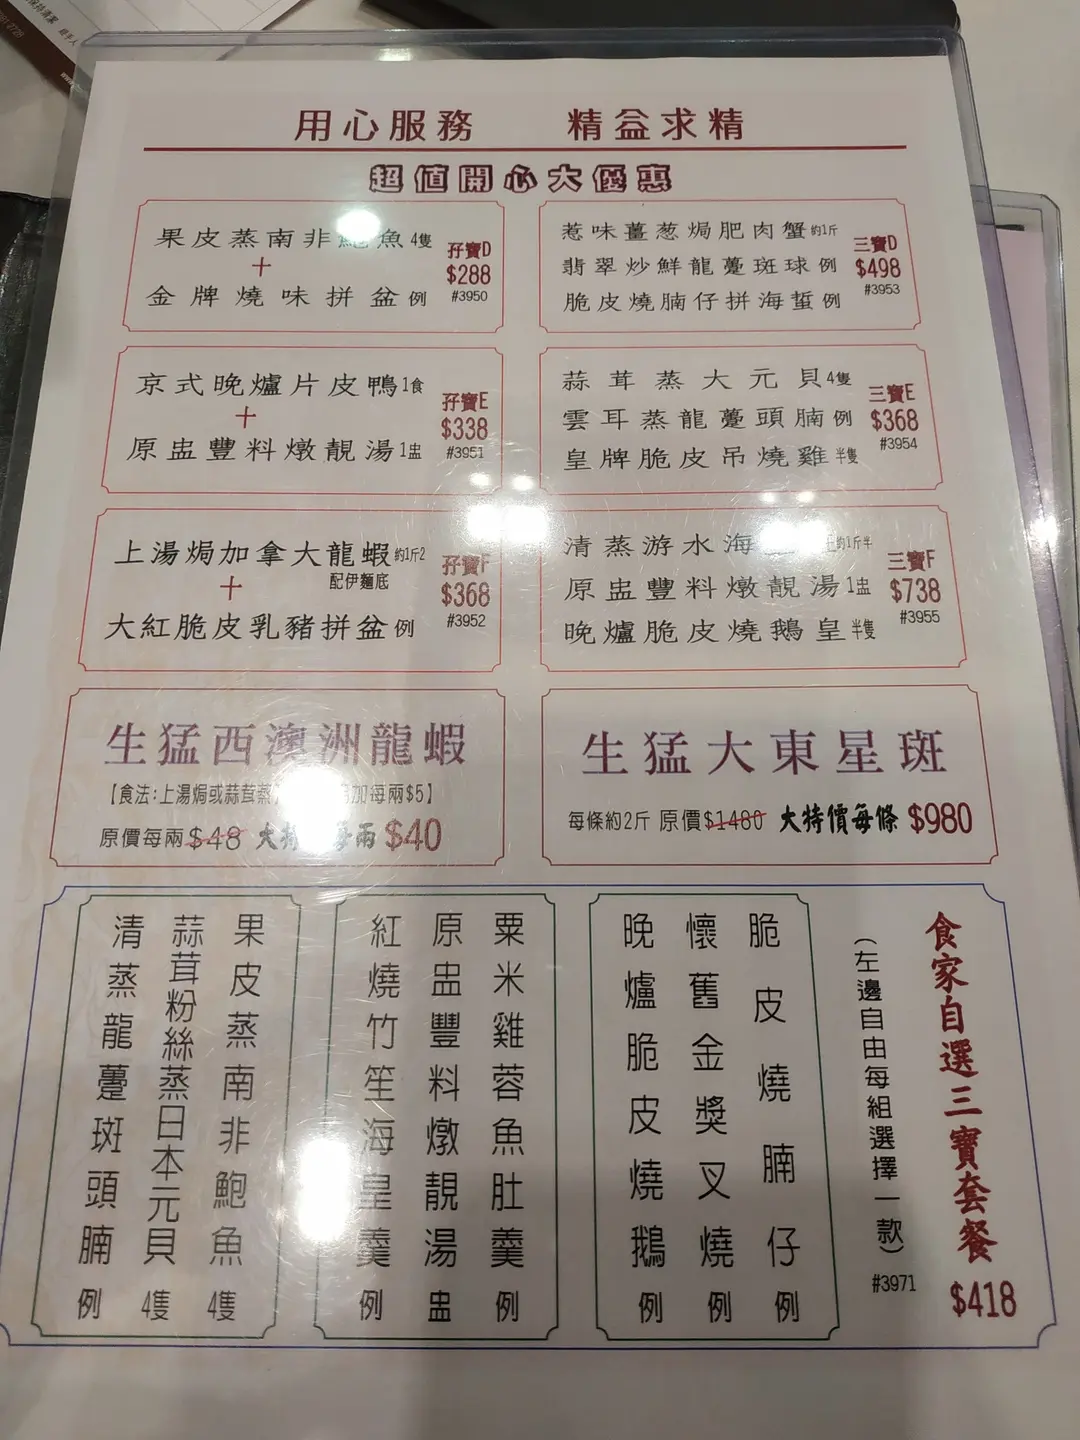 用心服務 精益求精
超值開心大優惠
果皮蒸南非鮑魚 4隻
+
金牌燒味拼盆 例
孖寶D
$288
#3950
惹味薑葱焗肥肉蟹 約1斤
翡翠炒鮮龍躉斑球 例
脆皮燒腩仔拼海蜇 例
三寶D
$498
#3953
京式晚爐片皮鴨 1食
+
原盅豐料燉靚湯 1盅
孖寶E
$338
#3951
蒜茸蒸大元貝 4隻
雲耳蒸龍躉頭腩 例
皇牌脆皮吊燒雞 半隻
三寶E
$368
#3954
上湯焗加拿大龍蝦 約1斤2
配伊麵底
+
大紅脆皮乳豬拼盆 例
孖寶F
$368
#3952
清蒸游水海 約1斤半
原盅豐料燉靚湯 1盅
晚爐脆皮燒鵝皇 半隻
三寶F
$738
#3955
生猛西澳洲龍蝦
【食法:上湯焗或蒜茸蒸 加每兩$5】
原價每兩$48 大特 每兩 $40
生猛大東星斑
每條約2斤 原價$1480 大特價每條 $980
食家自選三寶套餐
$418
(左邊自由每組選擇一款)
#3971
脆皮燒腩仔 例
懷舊金獎叉燒 例
晚爐脆皮燒鵝 例
粟米雞蓉魚肚羹 例
原盅豐料燉靚湯 盅
紅燒竹笙海皇羹 例
果皮蒸南非鮑魚 4隻
蒜茸粉絲蒸日本元貝 4隻
清蒸龍躉斑頭腩 例